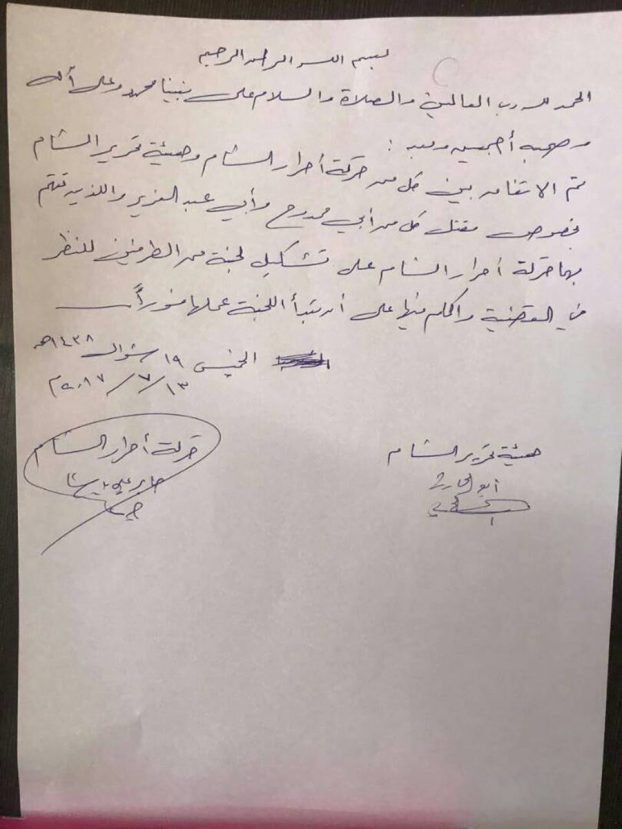 بسم الله الرحمن الرحيم
الحمد لله رب العالمين والصلاة والسلام على نبينا محمد وعلى آله
وصحبه أجمعين وبعد :
تم الاتفاق بين كل من حركة أحرار الشام وهيئة تحرير الشام
بخصوص مقتل كل من أبي ممدوح وأبي عبد العزيز واللذين تتهم
بها حركة أحرار الشام على تشكيل لجنة من الطرفين للنظر
في القضية والحكم فيها على أن تبدأ اللجنة عملها فوراً
الخميس ١٩ شوال ١٤٣٨هـ
١٣/٧/٢٠١٧م
هيئة تحرير الشام
أبو الحارث
حركة أحرار الشام
جابر علي باشا